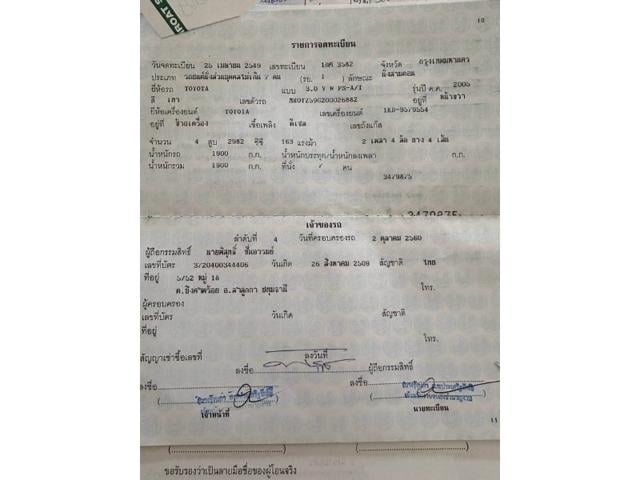 10
รายการจดทะเบียน
วันจดทะเบียน 25 เมษายน 2549 เลขทะเบียน 3582 จังหวัด กรุงเทพมหานคร
ประเภท รถยนต์นั่งส่วนบุคคลไม่เกิน 7 คน (รย. 1 ) ลักษณะ นั่งสามตอน
ยี่ห้อรถ TOYOTA แบบ 3.0 V รุ่นปี ค.ศ. 2005
สี เทา เลขตัวรถ อยู่ที่
ยี่ห้อเครื่องยนต์ TOYOTA เลขเครื่องยนต์ 1KD-9579554
อยู่ที่ เชื้อเพลิง ดีเซล เลขถังแก๊ส
จำนวน 4 สูบ 2982 ซีซี 163 แรงม้า 2 เพลา 4 ล้อ ยาง 4 เส้น
น้ำหนักรถ 1900 ก.ก. น้ำหนักบรรทุก/น้ำหนักลงเพลา ก.ก.
น้ำหนักรวม 1900 ก.ก. ที่นั่ง 7 คน
3479875
3479875
เจ้าของรถ
ลำดับที่ 4 วันที่ครอบครองรถ 2 ตุลาคม 2560
ผู้ถือกรรมสิทธิ์
เลขที่บัตร 3720400344406 วันเกิด 26 สิงหาคม 2509 สัญชาติ ไทย
ที่อยู่ 5/52 หมู่
ปทุมธานี โทร.
ผู้ครอบครอง
เลขที่บัตร วันเกิด สัญชาติ
ที่อยู่ โทร.
สัญญาเช่าซื้อเลขที่ ลงวันที่
ลงชื่อ ผู้ถือกรรมสิทธิ์
ลงชื่อ ลงชื่อ
เจ้าหน้าที่ นายทะเบียน
11
ขอรับรองว่าเป็นลายมือชื่อของผู้โอนจริง